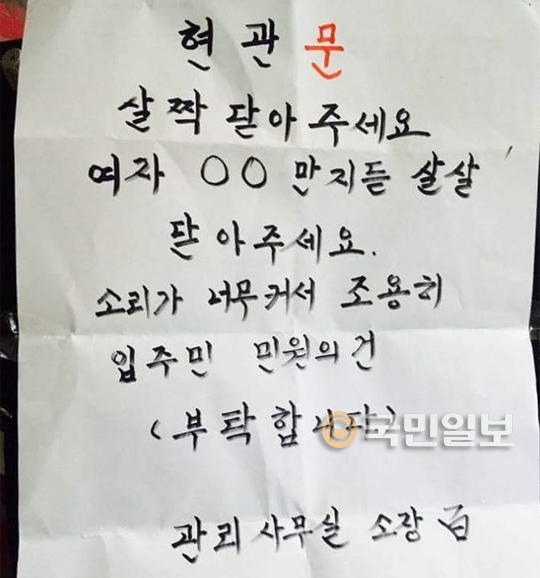 현관문
살짝 닫아 주세요
여자 ○○ 만지듯 살살
닫아주세요.
소리가 너무커서 조용히
입주민 민원의건
(부탁합니다)
국민일보
관리사무실 소장 백